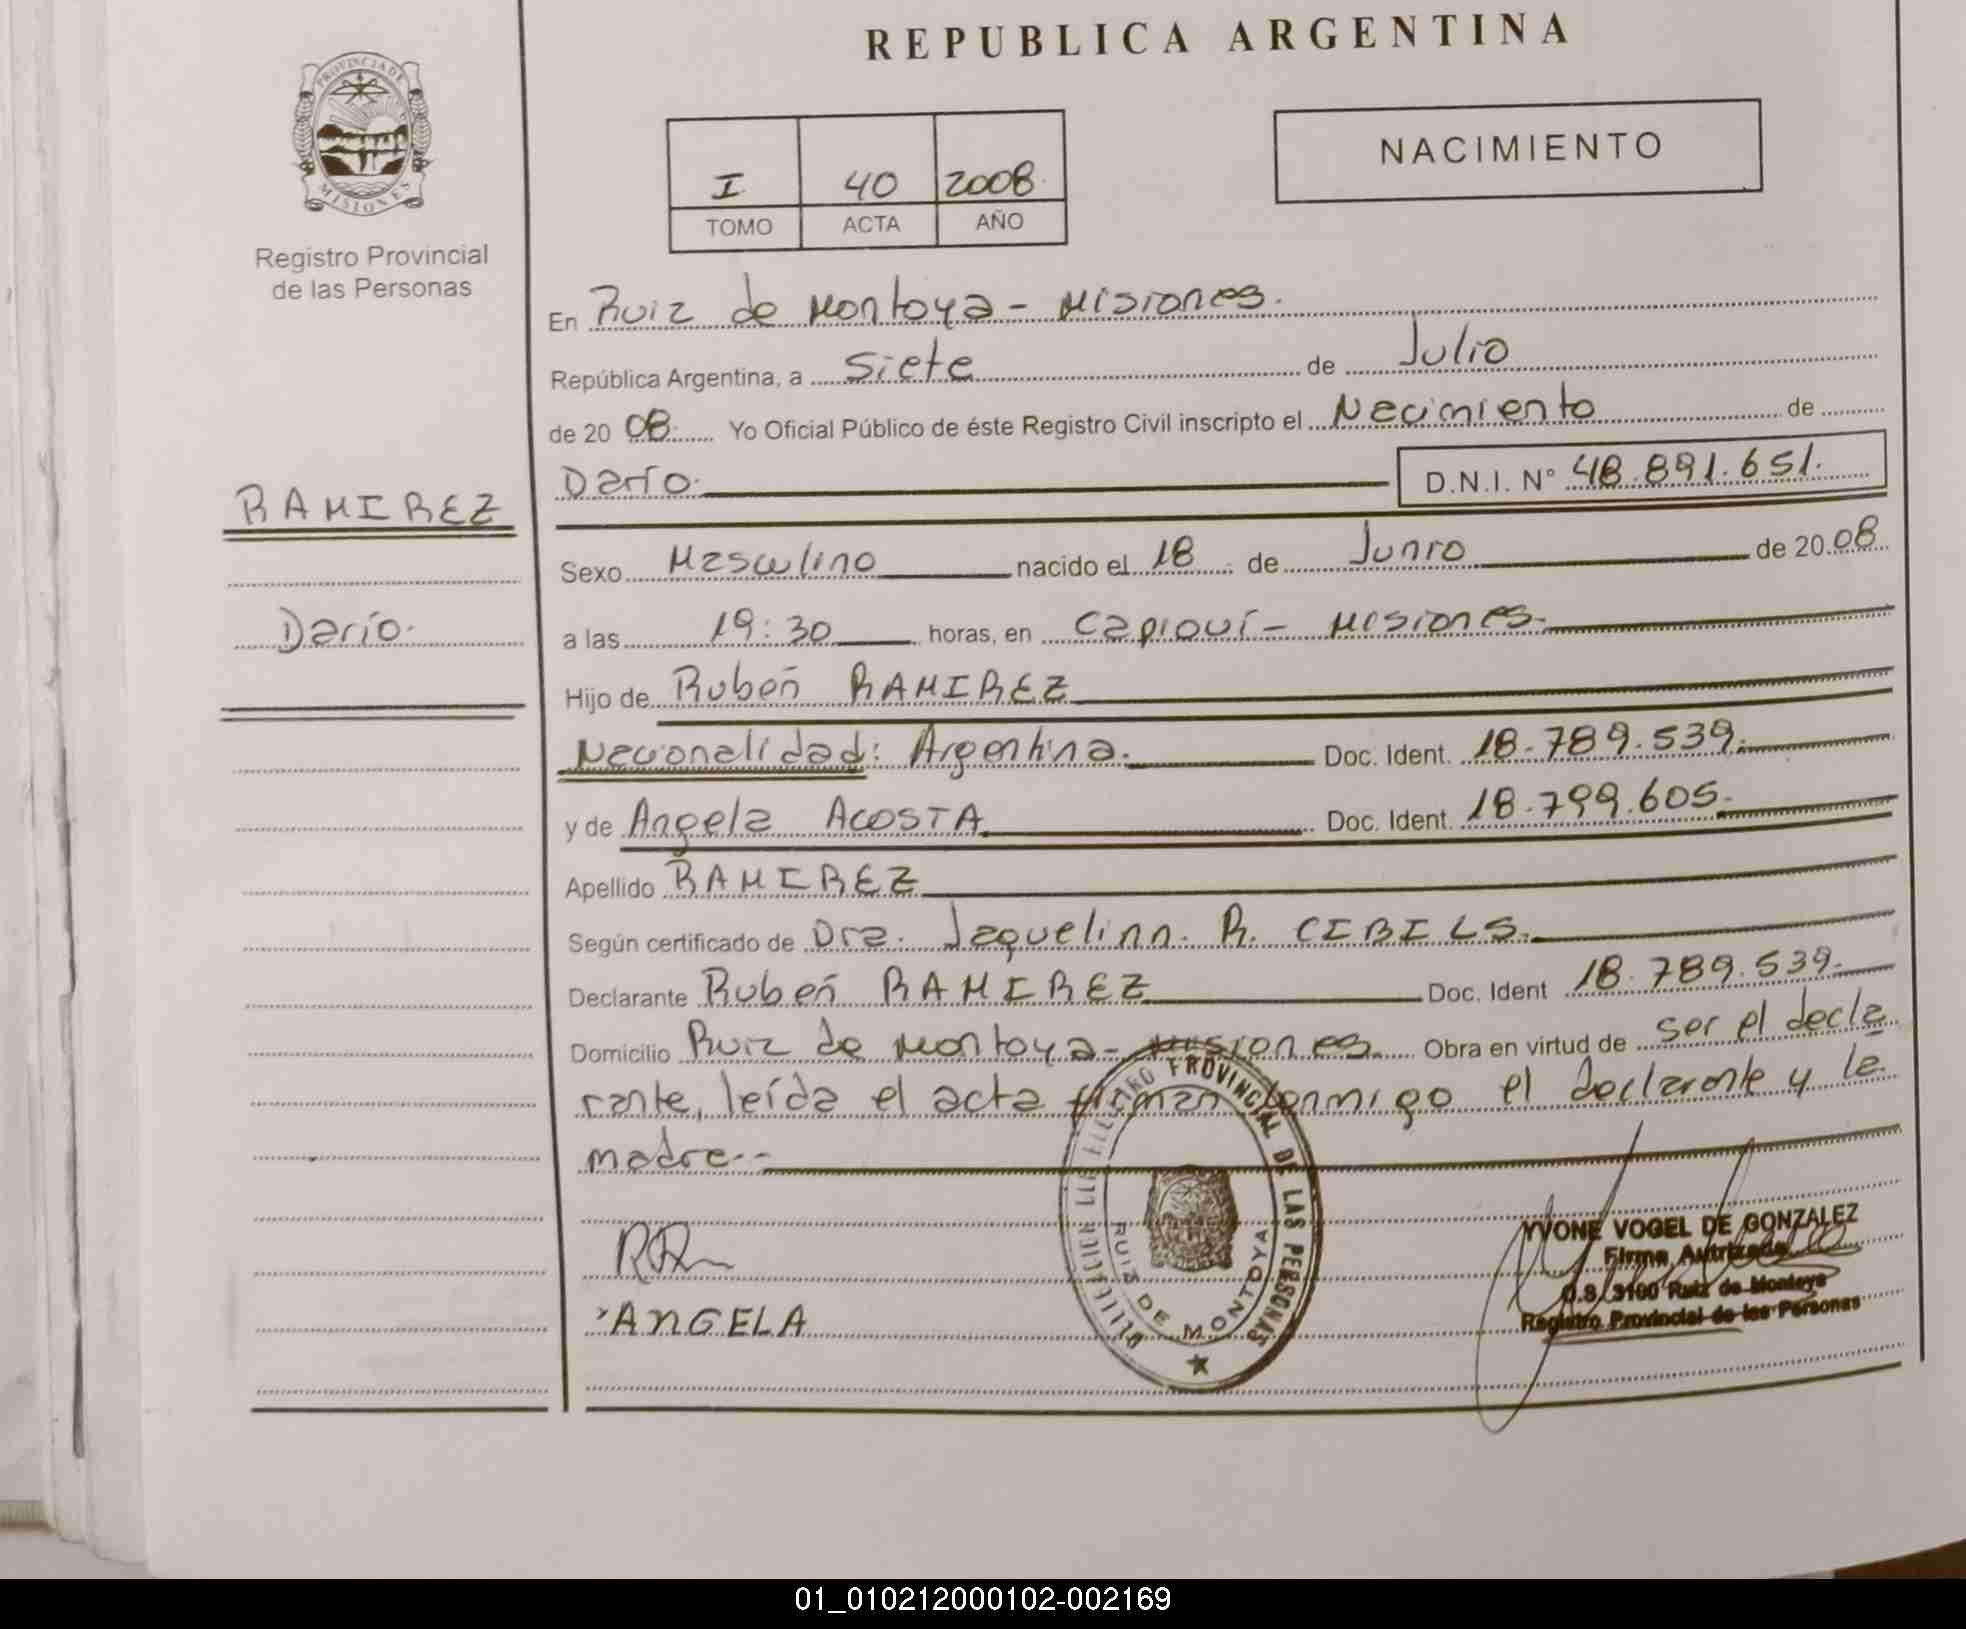 REPUBLICA ARGENTINA
PROVINCIA DE
MISIONES
Registro Provincial
de las Personas
I 40 2008
TOMO ACTA AÑO
NACIMIENTO
En Ruiz de Montoya - Misiones.
República Argentina, a Siete de Julio
de 2008. Yo Oficial Público de éste Registro Civil inscripto el Nacimiento de
Darío. D.N.I. Nº 48.891.651.
RAMIREZ
Sexo Masculino nacido el 18 de Junio de 2008
Darío.
a las 19:30 horas, en Capioví - Misiones.
Hijo de Rubén RAMIREZ
Nacionalidad: Argentina. Doc. Ident. 18.789.539.
y de Angela ACOSTA Doc. Ident. 18.799.605.
Apellido RAMIREZ
Según certificado de Dra. Jaquelinn. R. CIBILS.
Declarante Rubén RAMIREZ Doc. Ident 18.789.539.
Domicilio Ruiz de Montoya - Misiones. Obra en virtud de ser el decla
rante, leída el acta firman conmigo el declarante y la
madre--
PROVINCIAL DE LAS PERSONAS
RUIZ DE MONTOYA
YVONE VOGEL DE GONZALEZ
Firma Autrizada
O.S. 3100 Ruiz de Montoya
Registro Provincial de las Personas
ANGELA
01_010212000102-002169